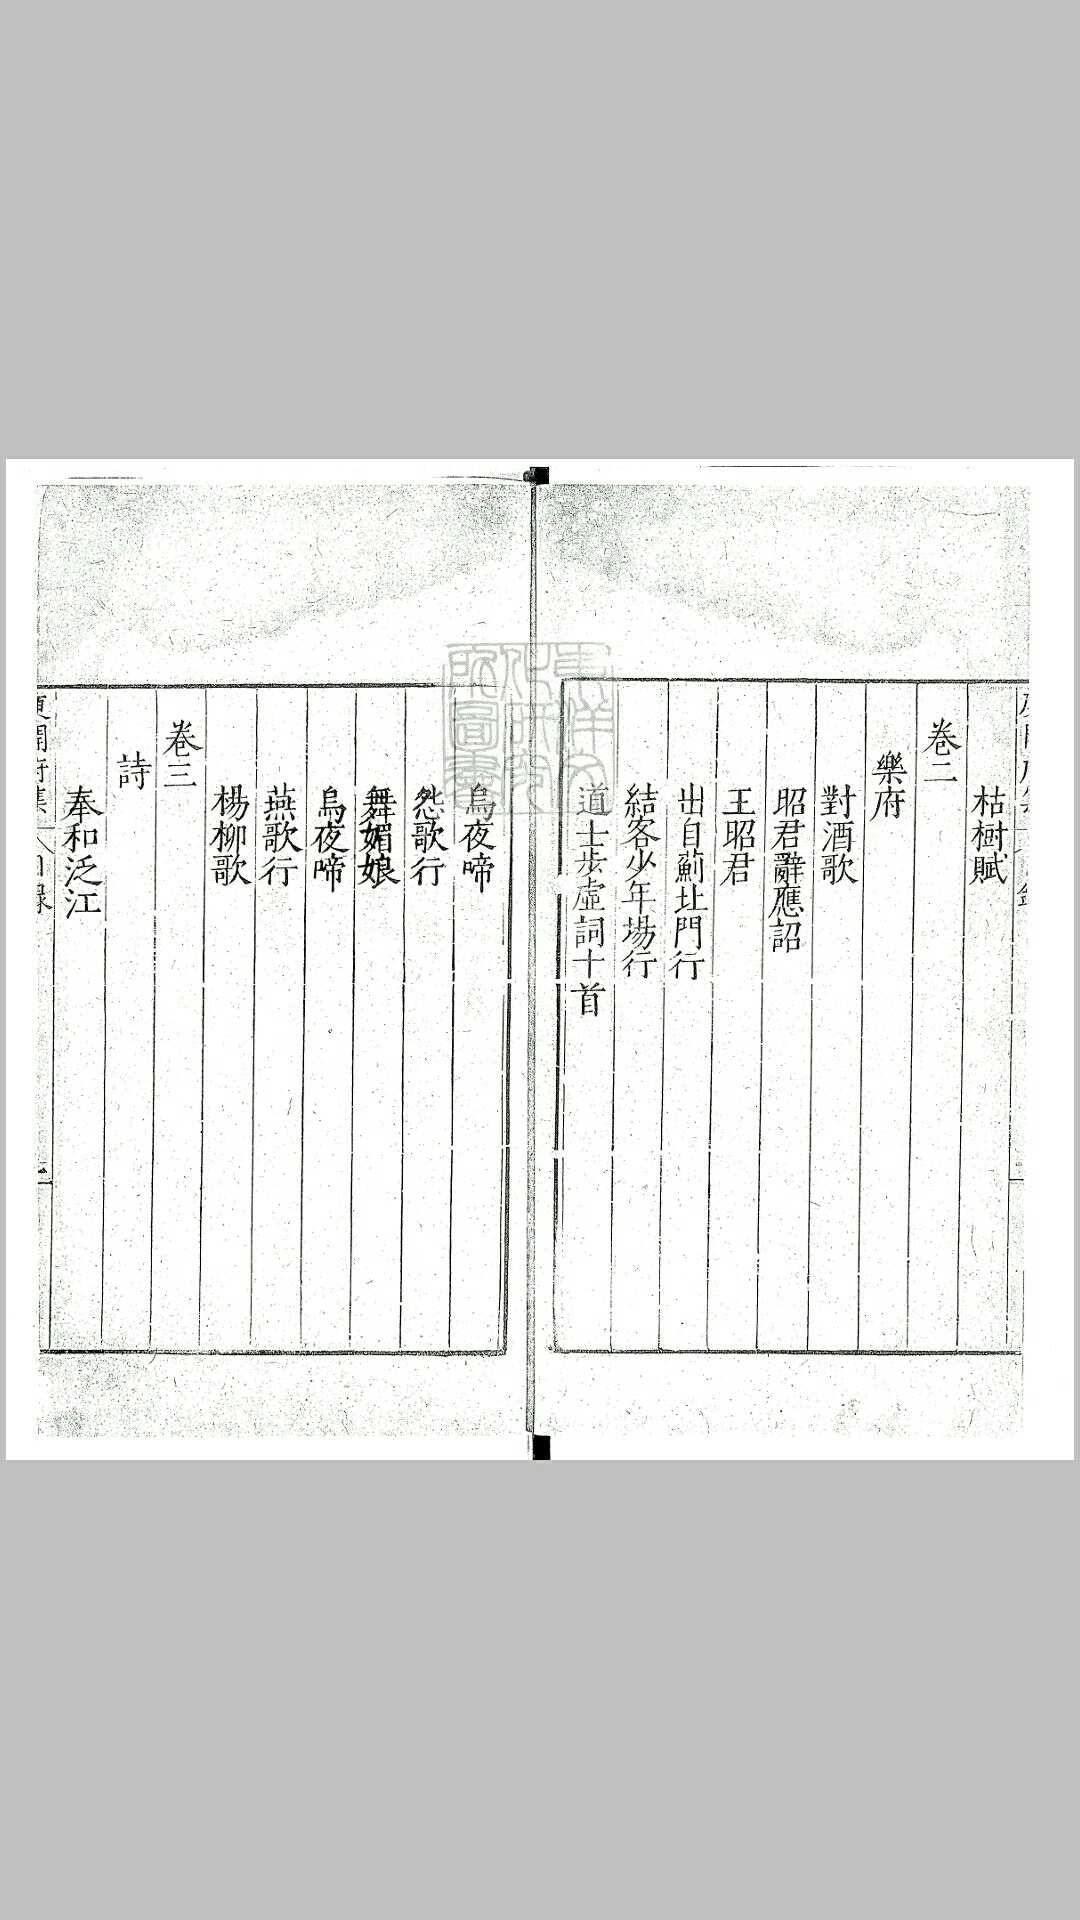 枯樹賦
卷二
樂府
對酒歌
昭君辭應詔
王昭君
出自薊北門行
結客少年場行
道士步虛詞十首
烏夜啼
怨歌行
舞媚娘
烏夜啼
燕歌行
楊柳歌
卷三
詩
奉和泛江